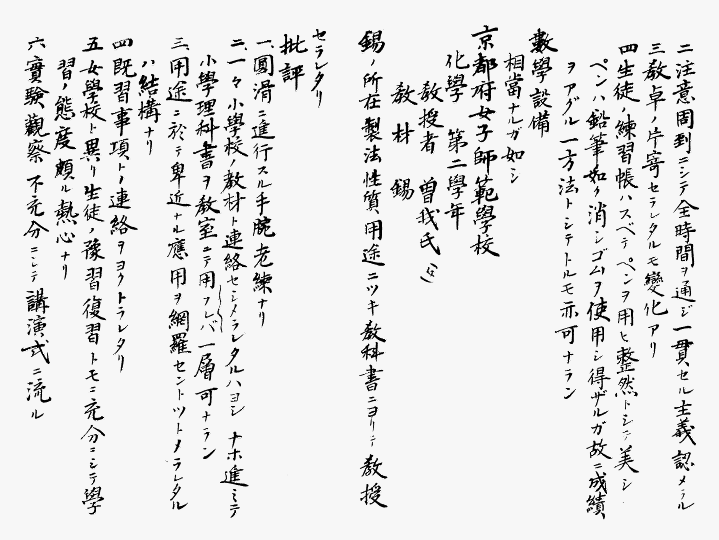 二 注意周到ニシテ全時間ヲ通ジ一貫セル主義認メラル
三 教卓ノ片寄セラレタルモ變化アリ
四 生徒ノ練習帳ハスベテペンヲ用ヒ整然トシテ美シ
ペンハ鉛筆如ク消シゴムヲ使用シ得ザルガ故ニ成績
ヲアグル一方法トシテトルモ亦可ナラン
數學設備
相當ナルガ如シ
京都府女子師範學校
化學 第二學年
教授者 曽我氏
教材 錫
錫ノ所在製法性質用途ニツキ教科書ニヨリテ教授
セラレタリ
批評
一、圓滑ニ進行スル手腕老練ナリ
二、一々小學校ノ教材ト連絡セシメラレタルハヨシ ナホ進ミテ
小學理科書ヲ教室ニテ用フレバ一層可ナラン
三、用途ニ於テ卑近ナル應用ヲ網羅セントツトメラレタル
ハ結構ナリ
四 既習事項トノ連絡ヲヨクトラレタリ
五 女學校ト異リ生徒ノ豫習復習トモニ充分ニシテ學
習ノ態度頗ル熱心ナリ
六 實驗觀察不充分ニシテ講演式ニ流ル